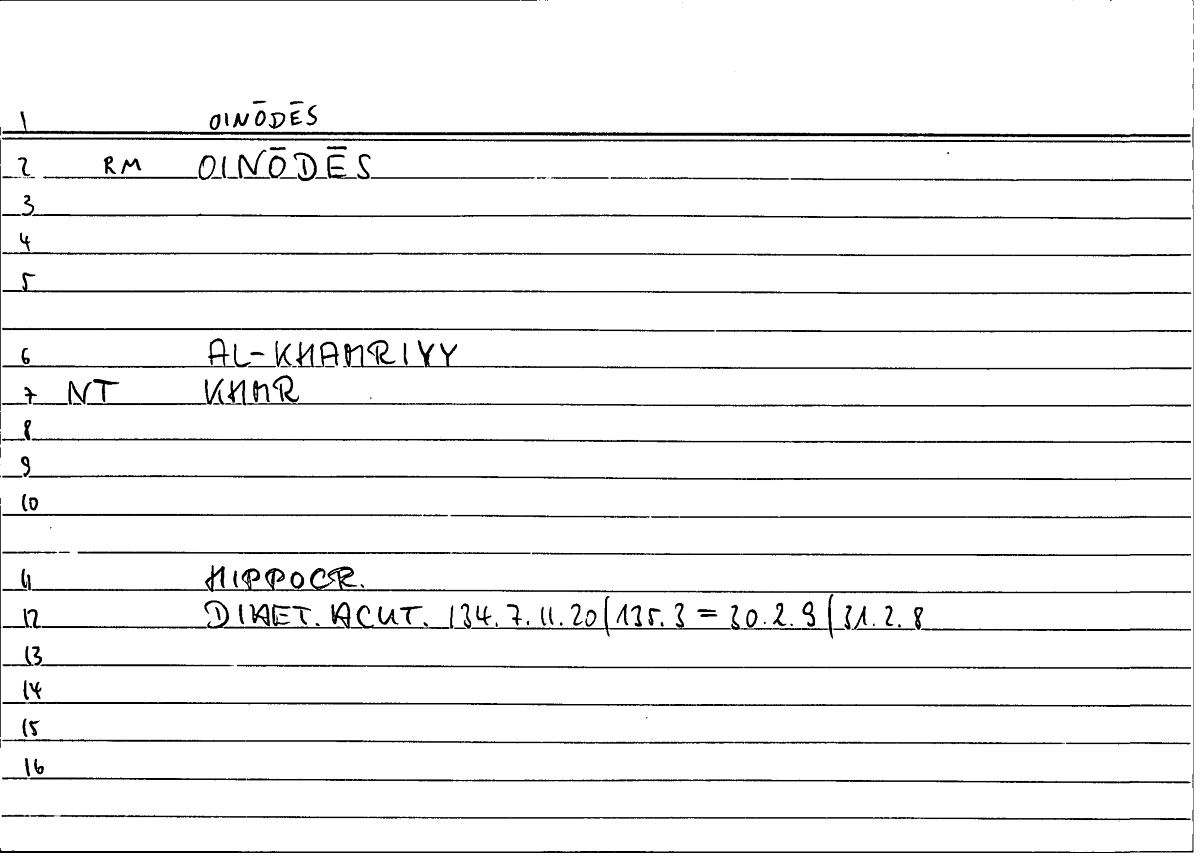 1 OINŌDĒS
2 RM OINŌDĒS
3
4
5
6 AL-KHAMRIYY
7 NT KHMR
8
9
10
11 HIPPOCR.
12 DIAET. ACUT. 134.7.11.20/135.3 = 30.2.9/31.2.8
13
14
15
16